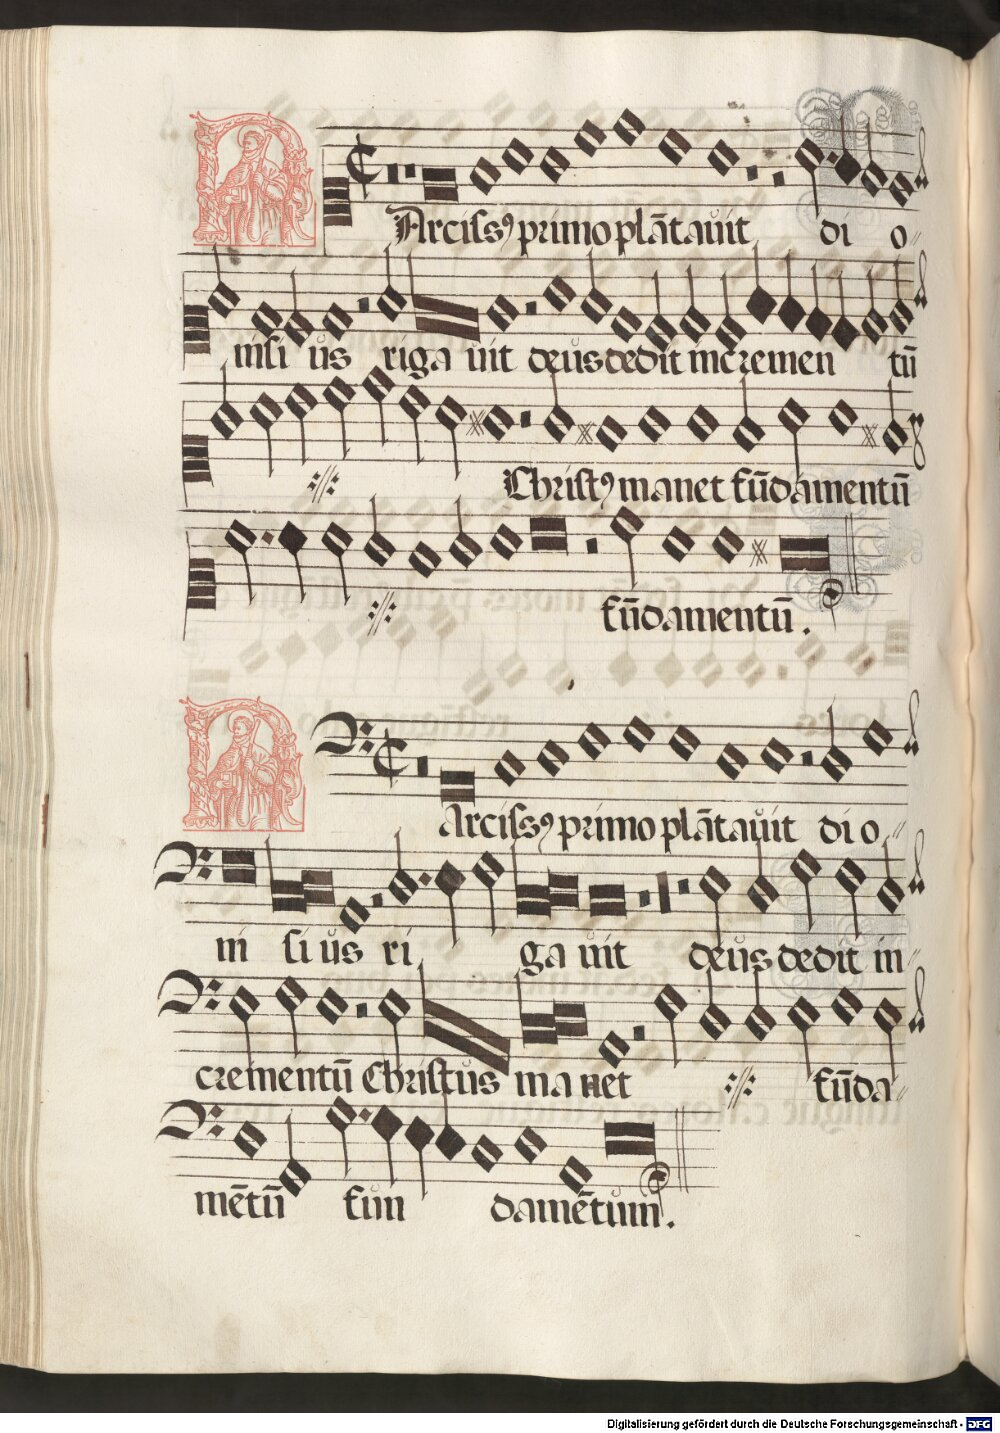 NArciſsꝰ primo plātauit di o
niſi us riga uit deus dedit incremen tū
Chriſtꝰ manet fūdamentū
fūdamentū.
NArciſsꝰ primo plātauit di o
ni ſi us ri ga uit deus dedit in
crementū Chriſtus ma net fūda
mētū fun damētum.
Digitalisierung gefördert durch die Deutsche Forschungsgemeinschaft - DFG